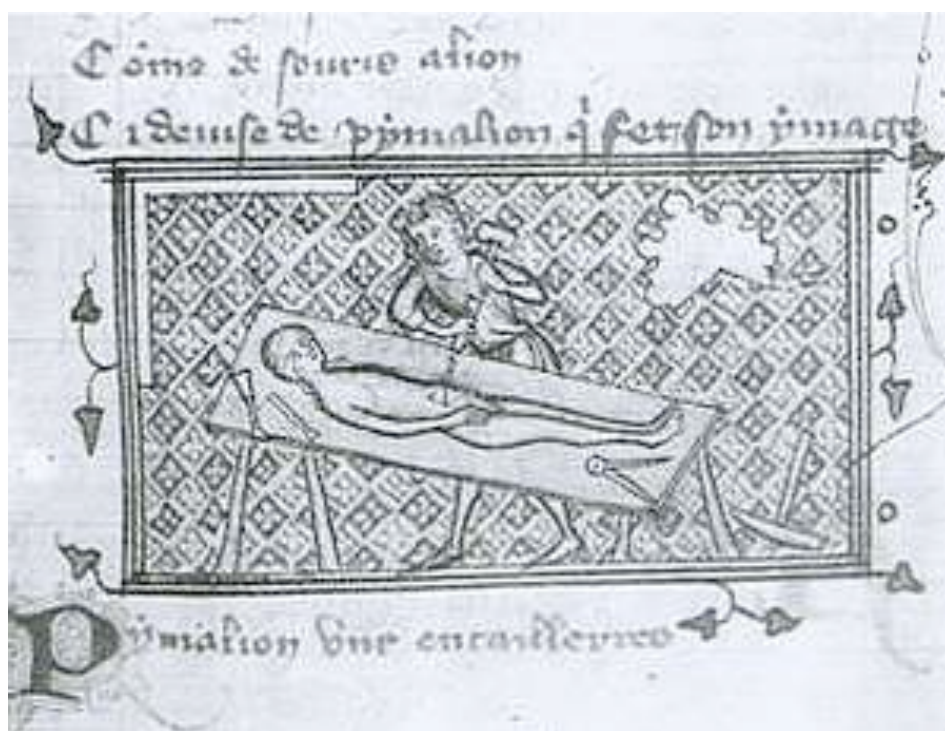 Cōme de
Ci deuise de pymalion q̄ fet son ymage
Pymalion vns entaillierres